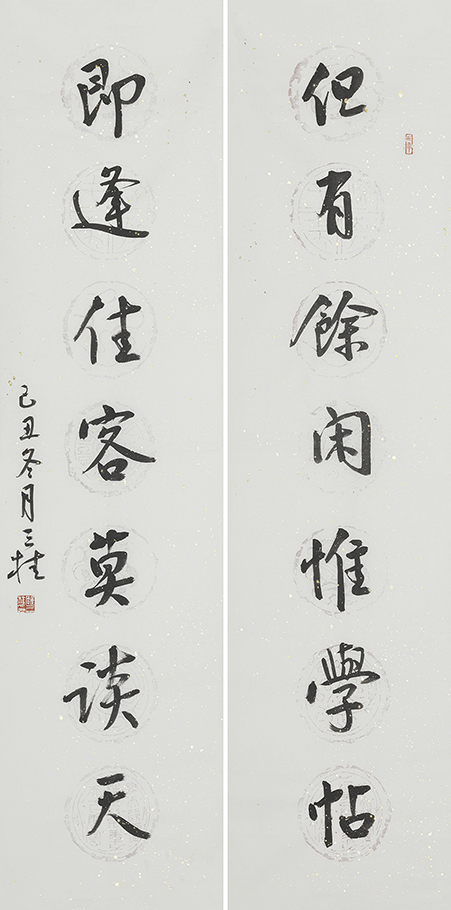 但有餘闲惟學帖
即逢佳客莫谈天
己丑冬月三桂